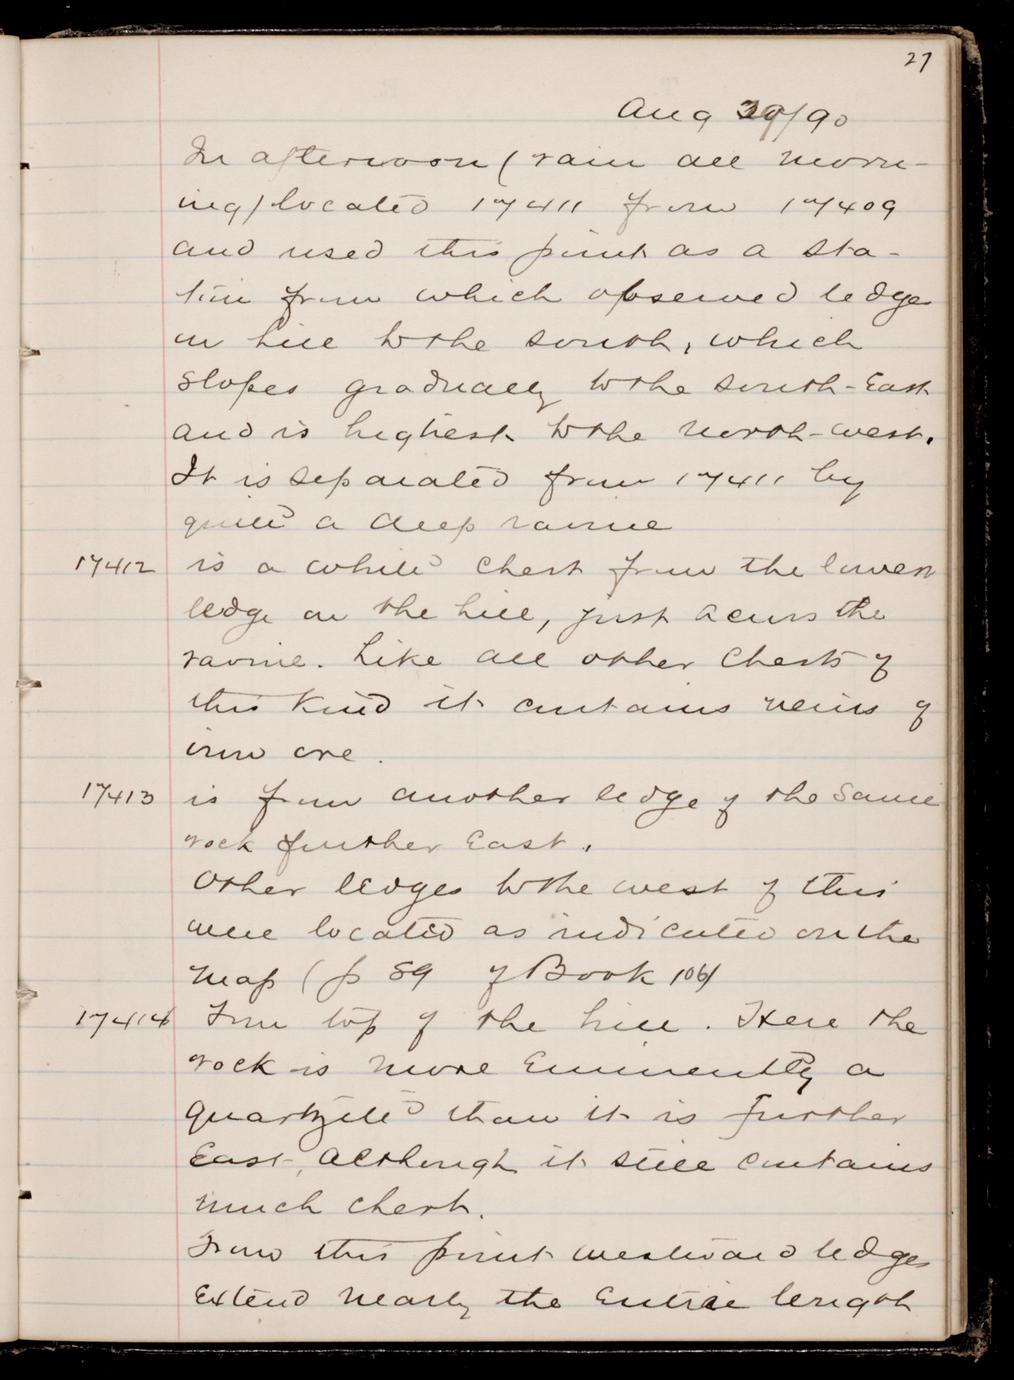 27
Aug 29/90
In afternoon (rain all morn-
ing) located 17411 from 17409
and used this point as a sta-
tion from which observed ledge
on hill to the south, which
slopes gradually to the south-East
and is highest to the north-west.
It is separated from 17411 by
quite a deep ravine
17412 is a white chert from the lower
ledge on the hill, just across the
ravine. Like all other cherts of
this kind it contains veins of
iron ore.
17413 is from another ledge of the same
rock further East.
Other ledges to the west of this
were located as indicated on the
map (p 89 of Book 106)
17414 From top of the hill. Here the
rock is more Eminently a
quartzite than it is further
East, although it still contains
much chert.
From this point westward ledges
Extend nearly the Entire length